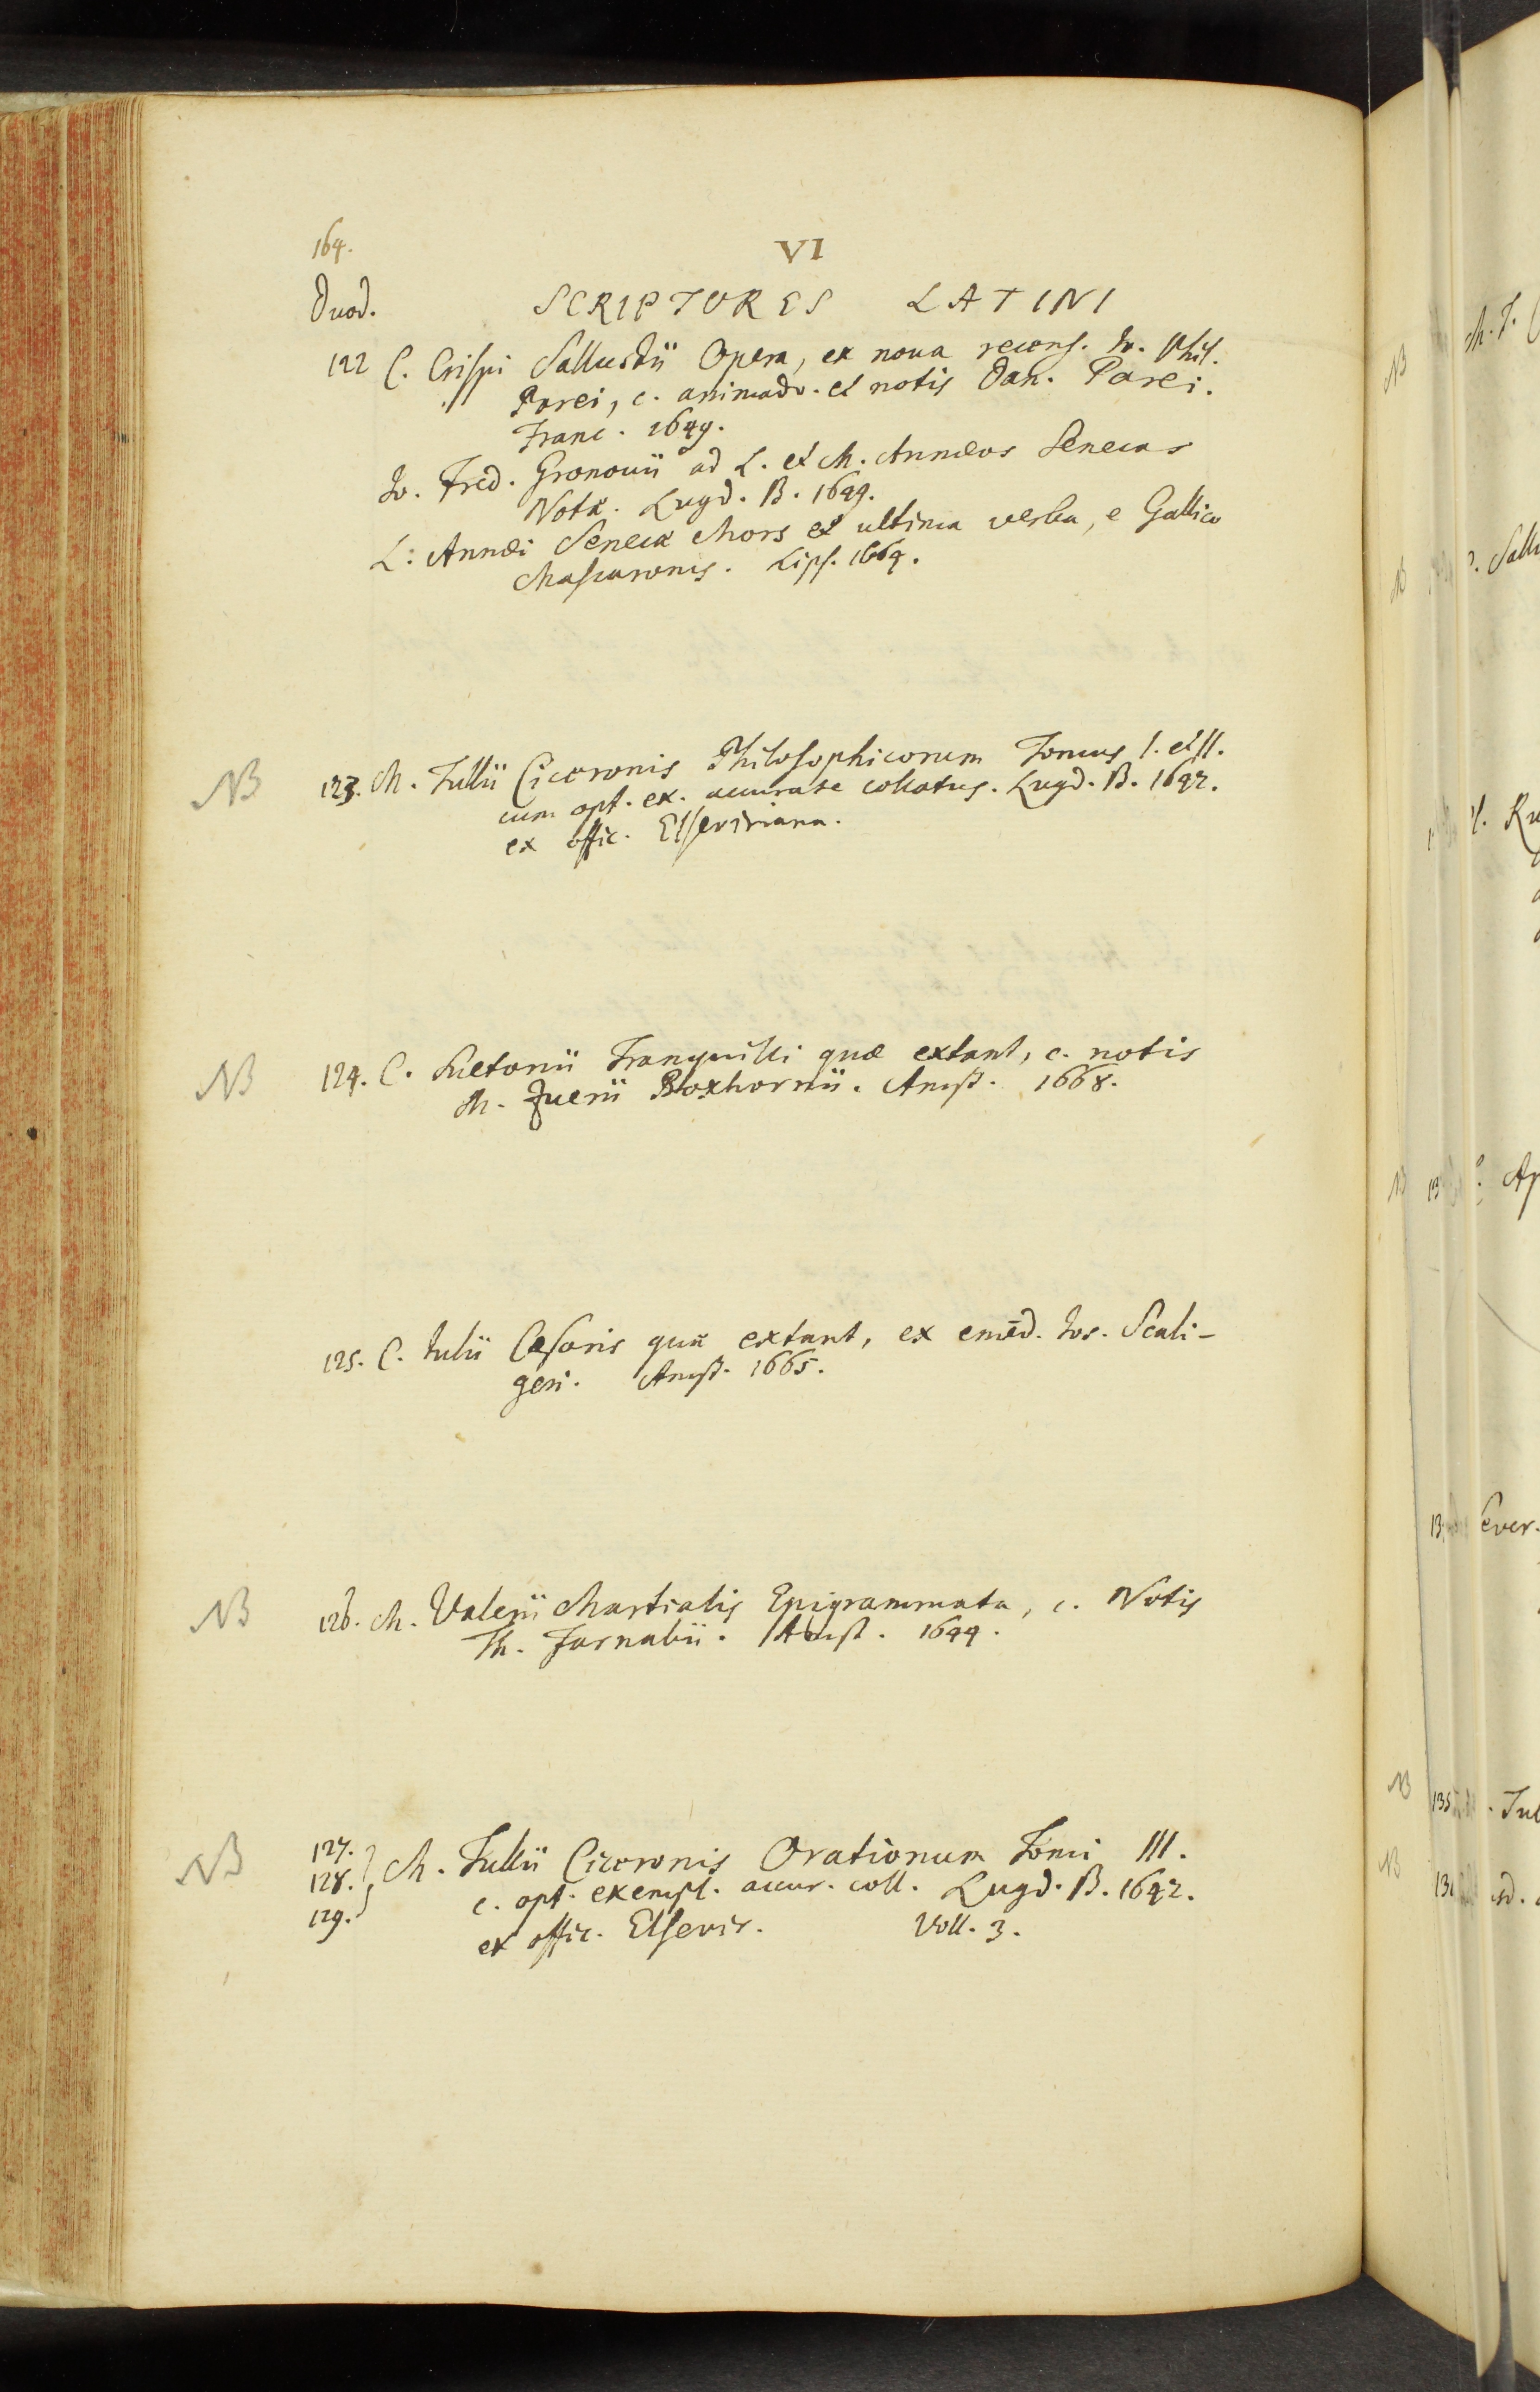 164.
VI
Duod. SCRIPTORES LATINI
122 C. Crispi Sallustii Opera, ex noua recens. Io. Phil.
Parei, c. animadv. et notis Dan. Parei.
Franc. 1649.
Io. Fred. Gronouii ad L. et M. Annæos Senecas
Notæ. Lugd. B. 1649.
L. Annæi Senecæ Mors et ultima verba, e Gallico
Mascaronis. Lips. 1664.
NB 123. M. Tullii Ciceronis Philosophicorum Tomus I. et II.
cum opt. ex. accurate collatus. Lugd. B. 1642.
ex offic. Elseviriana.
NB 124. C. Suetonii Tranquilli quæ extant, c. notis
M. Zuerii Boxhornii. Amst. 1668.
125. C. Iulii Cæsaris quæ extant, ex emēd. Ios. Scali-
geri. Amst. 1665.
NB 126. M. Valerii Martialis Epigrammata, c. Notis
Th. Farnabii. Amst. 1644.
NB 127.
128. } M. Tullii Ciceronis Orationum Tomi III.
129. c. opt. exempl. accur. coll. Lugd. B. 1642.
ex offic. Elsevir. Voll. 3.
NB
M. T.
NB
Sallu
Ru
NB
Ap
Sever.
NB
135
Tul
NB